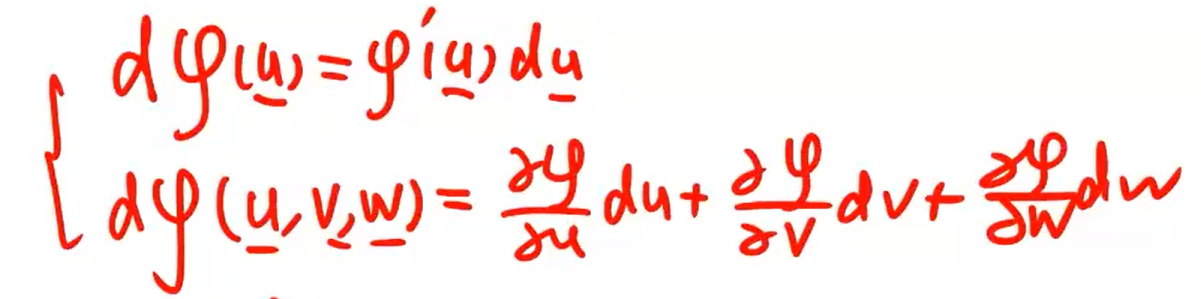 dφ(u) = φ'(u) du
dφ(u, v, w) = ∂φ/∂u du + ∂φ/∂v dv + ∂φ/∂w dw